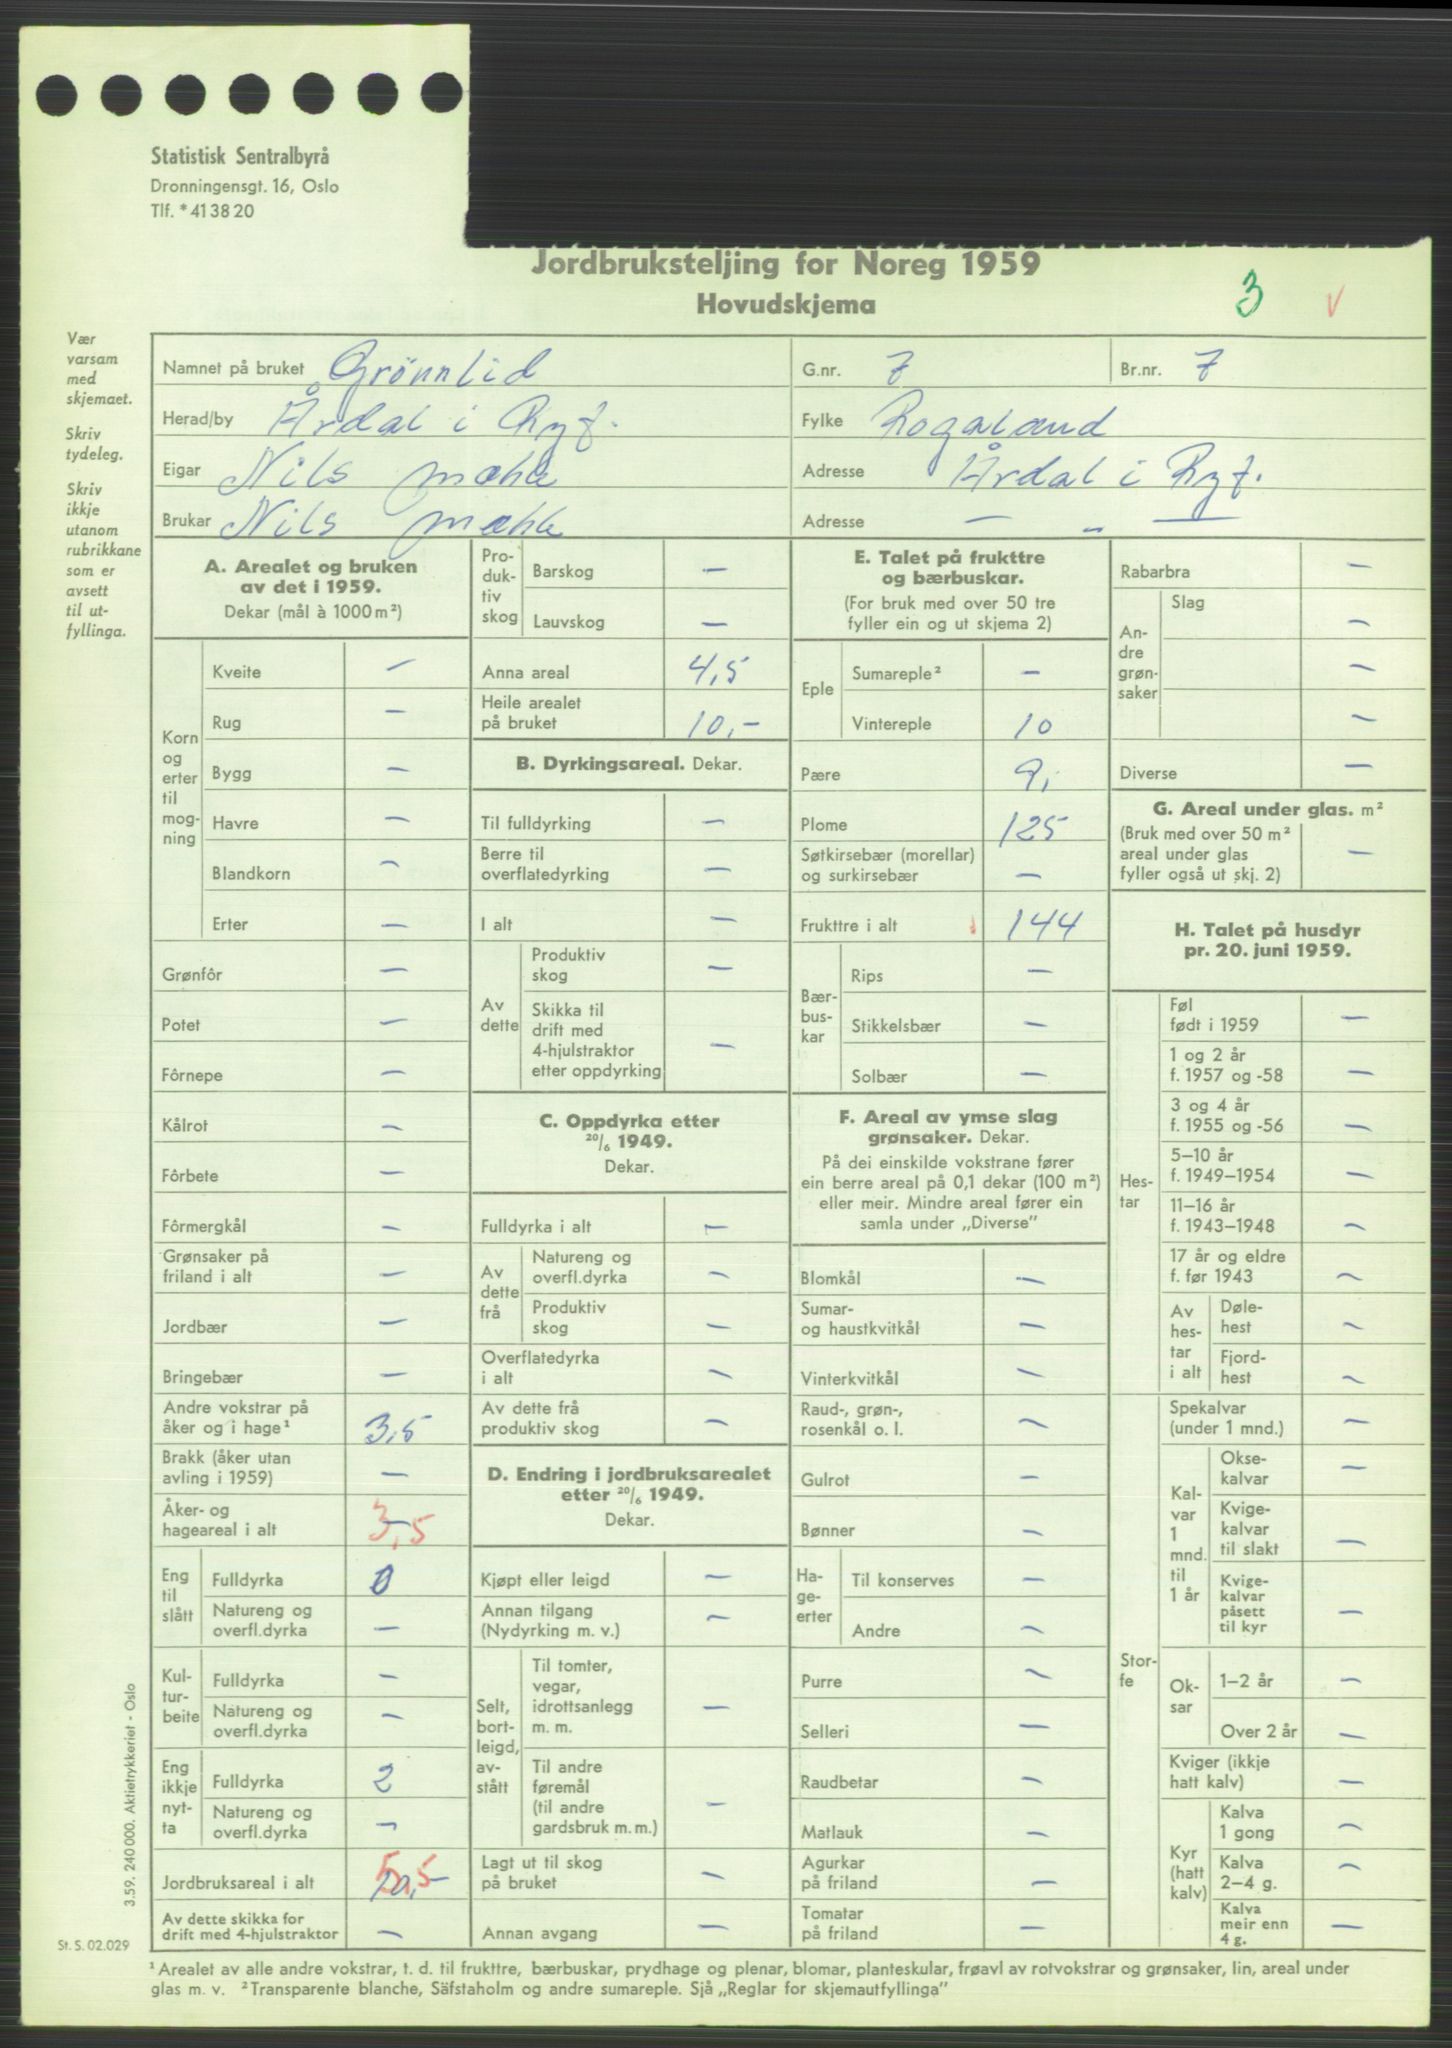 Statistisk Sentralbyrå
Dronningensgt. 16, Oslo
Tlf. * 41 38 20
Jordbruksteljing for Noreg 1959
Hovudskjema
3 v
Vær
varsam
med
skjemaet.
Skriv
tydeleg.
Skriv
ikkje
utanom
rubrikkane
som er
avsett
til ut-
fyllinga.
Namnet på bruket Grönnlid G.nr. 7 Br.nr. 7
Herad/by Årdal i Ryf. Fylke Rogaland
Eigar Nils Mæhle Adresse Årdal i Ryf.
Brukar Nils Mæhle Adresse — „ —
A. Arealet og bruken
av det i 1959.
Dekar (mål à 1000 m²)
Korn
og
erter
til
mog-
ning
Kveite —
Rug —
Bygg —
Havre —
Blandkorn —
Erter —
Grønfôr —
Potet —
Fôrnepe —
Kålrot —
Fôrbete —
Fôrmergkål —
Grønsaker på
friland i alt —
Jordbær —
Bringebær —
Andre vokstrar på
åker og i hage¹ 3,5
Brakk (åker utan
avling i 1959) —
Åker- og
hageareal i alt — 3,5
Eng
til
slått
Fulldyrka 0
Natureng og
overfl.dyrka —
Kul-
tur-
beite
Fulldyrka —
Natureng og
overfl.dyrka —
Eng
ikkje
nyt-
ta
Fulldyrka 2
Natureng og
overfl.dyrka —
Jordbruksareal i alt 10,- 5,5
Av dette skikka for
drift med 4-hjulstraktor —
Pro-
duk-
tiv
skog
Barskog —
Lauvskog —
Anna areal 4,5
Heile arealet
på bruket 10,-
B. Dyrkingsareal. Dekar.
Til fulldyrking —
Berre til
overflatedyrking —
I alt —
Av
dette
Produktiv
skog —
Skikka til
drift med
4-hjulstraktor
etter oppdyrking —
C. Oppdyrka etter
20/6 1949.
Dekar.
Fulldyrka i alt —
Av
dette
frå
Natureng og
overfl.dyrka —
Produktiv
skog —
Overflatedyrka
i alt —
Av dette frå
produktiv skog —
D. Endring i jordbruksarealet
etter 20/6 1949.
Dekar.
Kjøpt eller leigd —
Annan tilgang
(Nydyrking m. v.) —
Selt,
bort-
leigd,
av-
stått
Til tomter,
vegar,
idrottsanlegg
m. m. —
Til andre
føremål
(til andre
gardsbruk m. m.) —
Lagt ut til skog
på bruket —
Annan avgang —
E. Talet på frukttre
og bærbuskar.
(For bruk med over 50 tre
fyller ein og ut skjema 2)
Eple
Sumareple² —
Vintereple 10
Pære 9,
Plome 125
Søtkirsebær (morellar)
og surkirsebær —
Frukttre i alt 144
Bær-
bus-
kar
Rips —
Stikkelsbær —
Solbær —
F. Areal av ymse slag
grønsaker. Dekar.
På dei einskilde vokstrane fører
ein berre areal på 0,1 dekar (100 m²)
eller meir. Mindre areal fører ein
samla under „Diverse”
Blomkål —
Sumar-
og haustkvitkål —
Vinterkvitkål —
Raud-, grøn-,
rosenkål o. l. —
Gulrot —
Bønner —
Ha-
ge-
erter
Til konserves —
Andre —
Purre —
Selleri —
Raudbetar —
Matlauk —
Agurkar
på friland —
Tomatar
på friland —
Rabarbra —
An-
dre
grøn-
saker
Slag
—
—
—
Diverse —
G. Areal under glas. m²
(Bruk med over 50 m²
areal under glas
fyller også ut skj. 2) —
H. Talet på husdyr
pr. 20. juni 1959.
Hes-
tar
Føl
født i 1959 —
1 og 2 år
f. 1957 og -58 —
3 og 4 år
f. 1955 og -56 —
5–10 år
f. 1949–1954 —
11–16 år
f. 1943–1948 —
17 år og eldre
f. før 1943 —
Av
hes-
tar
i alt
Døle-
hest —
Fjord-
hest —
Stor-
fe
Spekalvar
(under 1 mnd.) —
Kal-
var
1
mnd.
til
1 år
Okse-
kalvar —
Kvige-
kalvar
til slakt —
Kvige-
kalvar
påsett
til kyr —
Ok-
sar
1–2 år —
Over 2 år —
Kviger (ikkje
hatt kalv) —
Kyr
(hatt
kalv)
Kalva
1 gong —
Kalva
2–4 g. —
Kalva
meir enn
4 g. —
3.59. 240 000. Aktietrykkeriet - Oslo
St. S. 02.029
¹ Arealet av alle andre vokstrar, t. d. til frukttre, bærbuskar, prydhage og plenar, blomar, planteskular, frøavl av rotvokstrar og grønsaker, lin, areal under
glas m. v. ² Transparente blanche, Säfstaholm og andre sumareple. Sjå „Reglar for skjemautfyllinga”